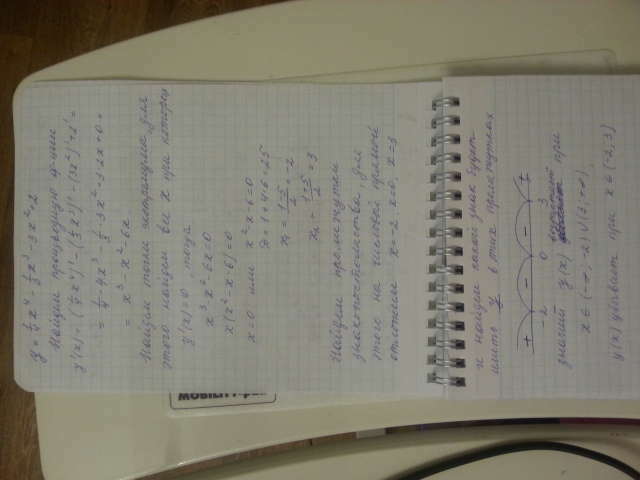 y = 1/4 x⁴ - 1/3 x³ - 3x² + 2
Найдем производную функции
y'(x) = (1/4 x⁴)' - (1/3 x³)' - (3x²)' + 2' =
= 1/4 · 4x³ - 1/3 · 3x² - 3·2x + 0 =
= x³ - x² - 6x
Найдем точки экстремума, для
этого найдем все x при которых
y'(x) = 0, тогда
x³ - x² - 6x = 0
x(x² - x - 6) = 0
x = 0 или x² - x - 6 = 0
D = 1 + 4·6 = 25
x₁ = (1-5)/2 = -2
x₂ = (1+5)/2 = 3
Найдем промежутки
знакопостоянства, для
этого на числовой прямой
отметим x = -2, x = 0, x = 3
и найдем какой знак будет
иметь y' в этих промежутках
+ - - +
-2 0 3
значит y(x) возрастает при
x ∈ (-∞, -2) ∪ (3, +∞)
y(x) убывает при x ∈ (-2, 3)
MOBILITY